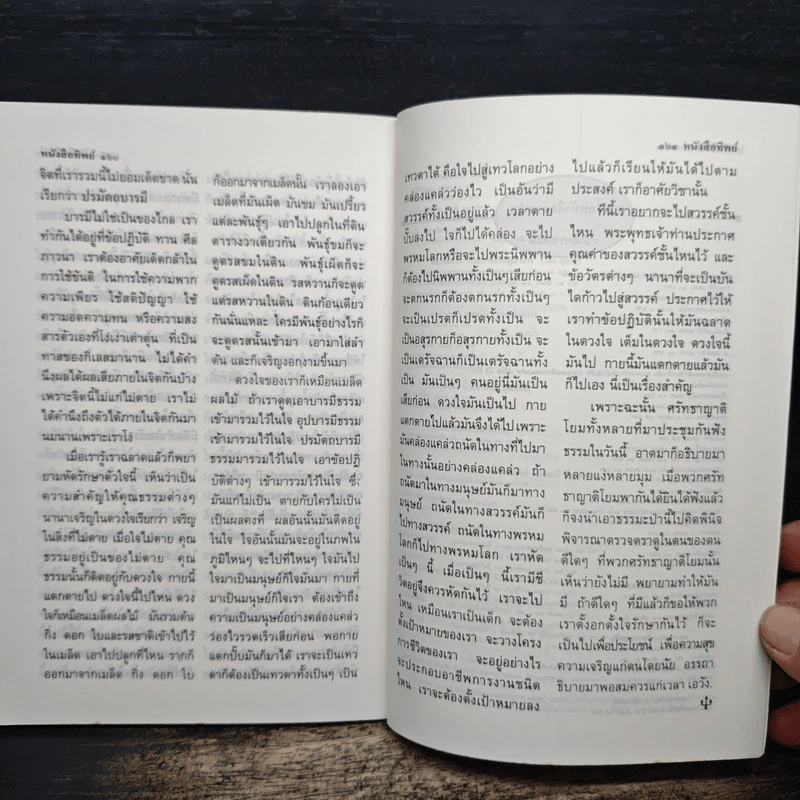 หนังสือทิพย์ ๑๖๐
จิตที่เรารวมนี้ไม่ยอมเด็ดขาด นั่น
เรียกว่า ปรมัตถบารมี
บารมีไม่ใช่เป็นของไกล เรา
ทำกันได้อยู่ที่ข้อปฏิบัติ ทาน ศีล
ภาวนา เราต้องอาศัยเด็ดกล้าใน
การใช้ขันติ ในการใช้ความพาก
ความเพียร ใช้สติปัญญา ใช้
ความอดความทน หรือความสง
สารตัวเองที่โง่เง่าเต่าตุ่น ที่เป็น
ทาสของกิเลสมานาน ไม่ได้คำ
นึงผลได้ผลเสียภายในจิตกันบ้าง
เพราะจิตนี้ไม่แก่ไม่ตาย เราไม่
ได้คำนึงถึงตัวได้ภายในจิตกันมา
นมนานเพราะเราโง่
เมื่อเรารู้เราฉลาดแล้วก็พยา
ยามหัดรักษาตัวใจนี้ เห็นว่าเป็น
ความสำคัญให้คุณธรรมต่างๆ
นานาเจริญในดวงใจเรียกว่า เจริญ
ในสิ่งที่ไม่ตาย เมื่อใจไม่ตาย คุณ
ธรรมอยู่เป็นของไม่ตาย คุณ
ธรรมนั้นก็ติดอยู่กับดวงใจ กายนี้
แตกตายไป ดวงใจนี้ไปไหน ดวง
ใจก็เหมือนเมล็ดผลไม้ มันรวมต้น
กิ่ง ดอก ใบและรสชาติเข้าไปไว้
ในเมล็ด เอาไปปลูกที่ไหน รากก็
ออกมาจากเมล็ด กิ่ง ดอก ใบ
ก็ออกมาจากเมล็ดนั้น เราลองเอา
เมล็ดที่มันเผ็ด มันขม มันเปรี้ยว
แต่ละพันธุ์ๆ เอาไปปลูกในที่ดิน
ตารางวาเดียวกัน พันธุ์ขมก็จะ
ดูดรสขมในดิน พันธุ์เผ็ดก็จะ
ดูดรสเผ็ดในดิน รสหวานก็จะดูด
แต่รสหวานในดิน ดินก้อนเดียว
กันนั่นแหละ ใครมีพันธุ์อย่างไรก็
จะดูดรสนั้นเข้ามา เอามาใส่ลำ
ต้น และก็เจริญงอกงามขึ้นมา
ดวงใจของเราก็เหมือนเมล็ด
ผลไม้ ถ้าเราดูดเอาบารมีธรรม
เข้ามารวมไว้ในใจ อุปบารมีธรรม
เข้ามารวมไว้ในใจ ปรมัตถบารมี
ธรรมมารวมไว้ในใจ เอาข้อปฏิ
บัติต่างๆ เข้ามารวมไว้ในใจ ซึ่ง
มันแก่ไม่เป็น ตายกับใครไม่เป็น
เป็นผลคงที่ ผลอันนั้นมันติดอยู่
ในใจ ใจอันนั้นมันจะอยู่ในภพใน
ภูมิไหนๆ จะไปที่ไหนๆ ใจมันไป
ใจมาเป็นมนุษย์ก็ใจมันมา กายที่
มาเป็นมนุษย์ก็ใจเรา ต้องเข้าถึง
ความเป็นมนุษย์อย่างคล่องแคล่ว
ว่องไวรวดเร็วเสียก่อน พอกาย
แตกปั๊บมันก็มาได้ เราจะเป็นเทว
ดาก็ต้องเป็นเทวดาทั้งเป็นๆ เป็น
๑๖๑ หนังสือทิพย์
เทวดาได้ คือใจไปสู่เทวโลกอย่าง
คล่องแคล่วว่องไว เป็นอันว่ามี
สวรรค์ทั้งเป็นอยู่แล้ว เวลาตาย
ปั๊บลงไป ใจก็ไปได้คล่อง จะไป
พรหมโลกหรือจะไปพระนิพพาน
ก็ต้องไปนิพพานทั้งเป็นๆเสียก่อน
จะตกนรกก็ต้องตกนรกทั้งเป็นๆ
จะเป็นเปรตก็เปรตทั้งเป็น จะ
เป็นอสุรกายก็อสุรกายทั้งเป็น จะ
เป็นเดรัจฉานก็เป็นเดรัจฉานทั้ง
เป็น มันเป็นๆ คนอยู่นี่มันเป็น
เสียก่อน ดวงใจมันเป็นไป กาย
แตกตายไปแล้วมันจึงได้ไป เพราะ
มันคล่องแคล่วถนัดในทางที่ไปมา
ในทางนั้นอย่างคล่องแคล่ว ถ้า
ถนัดมาในทางมนุษย์มันก็มาทาง
มนุษย์ ถนัดในทางสวรรค์มันก็
ไปทางสวรรค์ ถนัดในทางพรหม
โลกก็ไปทางพรหมโลก เราหัด
เป็นๆ นี้ เมื่อเป็นๆ นี้เรามีชี
วิตอยู่จึงควรหัดกันไว้ เราจะไป
ไหน เหมือนเราเป็นเด็ก จะต้อง
ตั้งเป้าหมายของเรา จะวางโครง
การชีวิตของเรา จะอยู่อย่างไร
จะประกอบอาชีพการงานชนิด
ไหน เราจะต้องตั้งเป้าหมายลง
ไปแล้วก็เรียนให้มันได้ไปตาม
ประสงค์ เราก็อาศัยวิชานั้น
ทีนี้เราอยากจะไปสวรรค์ชั้น
ไหน พระพุทธเจ้าท่านประกาศ
คุณค่าของสวรรค์ชั้นไหนไว้ และ
ข้อวัตรต่างๆ นานาที่จะเป็นบัน
ไดก้าวไปสู่สวรรค์ ประกาศไว้ให้
เราทำข้อปฏิบัตินั้นให้มันฉลาด
ในดวงใจ เต็มในดวงใจ ดวงใจนี้
มันไป กายนี้มันแตกตายแล้วมัน
ก็ไปเอง นี่เป็นเรื่องสำคัญ
เพราะฉะนั้น ศรัทธาญาติ
โยมทั้งหลายที่มาประชุมกันฟัง
ธรรมในวันนี้ อาตมาก็อธิบายมา
หลายแง่หลายมุม เมื่อพวกศรัท
ธาญาติโยมพากันได้ยินได้ฟังแล้ว
ก็จงนำเอาธรรมะปานี้ไปคิดพินิจ
พิจารณาตรวจตราดูในตนของตน
ดีใดๆ ที่พวกศรัทธาญาติโยมนั้น
เห็นว่ายังไม่มี พยายามทำให้มัน
มี ถ้าดีใดๆ ที่มีแล้วก็ขอให้พวก
เราตั้งอกตั้งใจรักษากันไว้ ก็จะ
เป็นไปเพื่อประโยชน์ เพื่อความสุข
ความเจริญแก่ตนโดยนัย อรรถา
ธิบายมาพอสมควรแก่เวลา เอวัง.